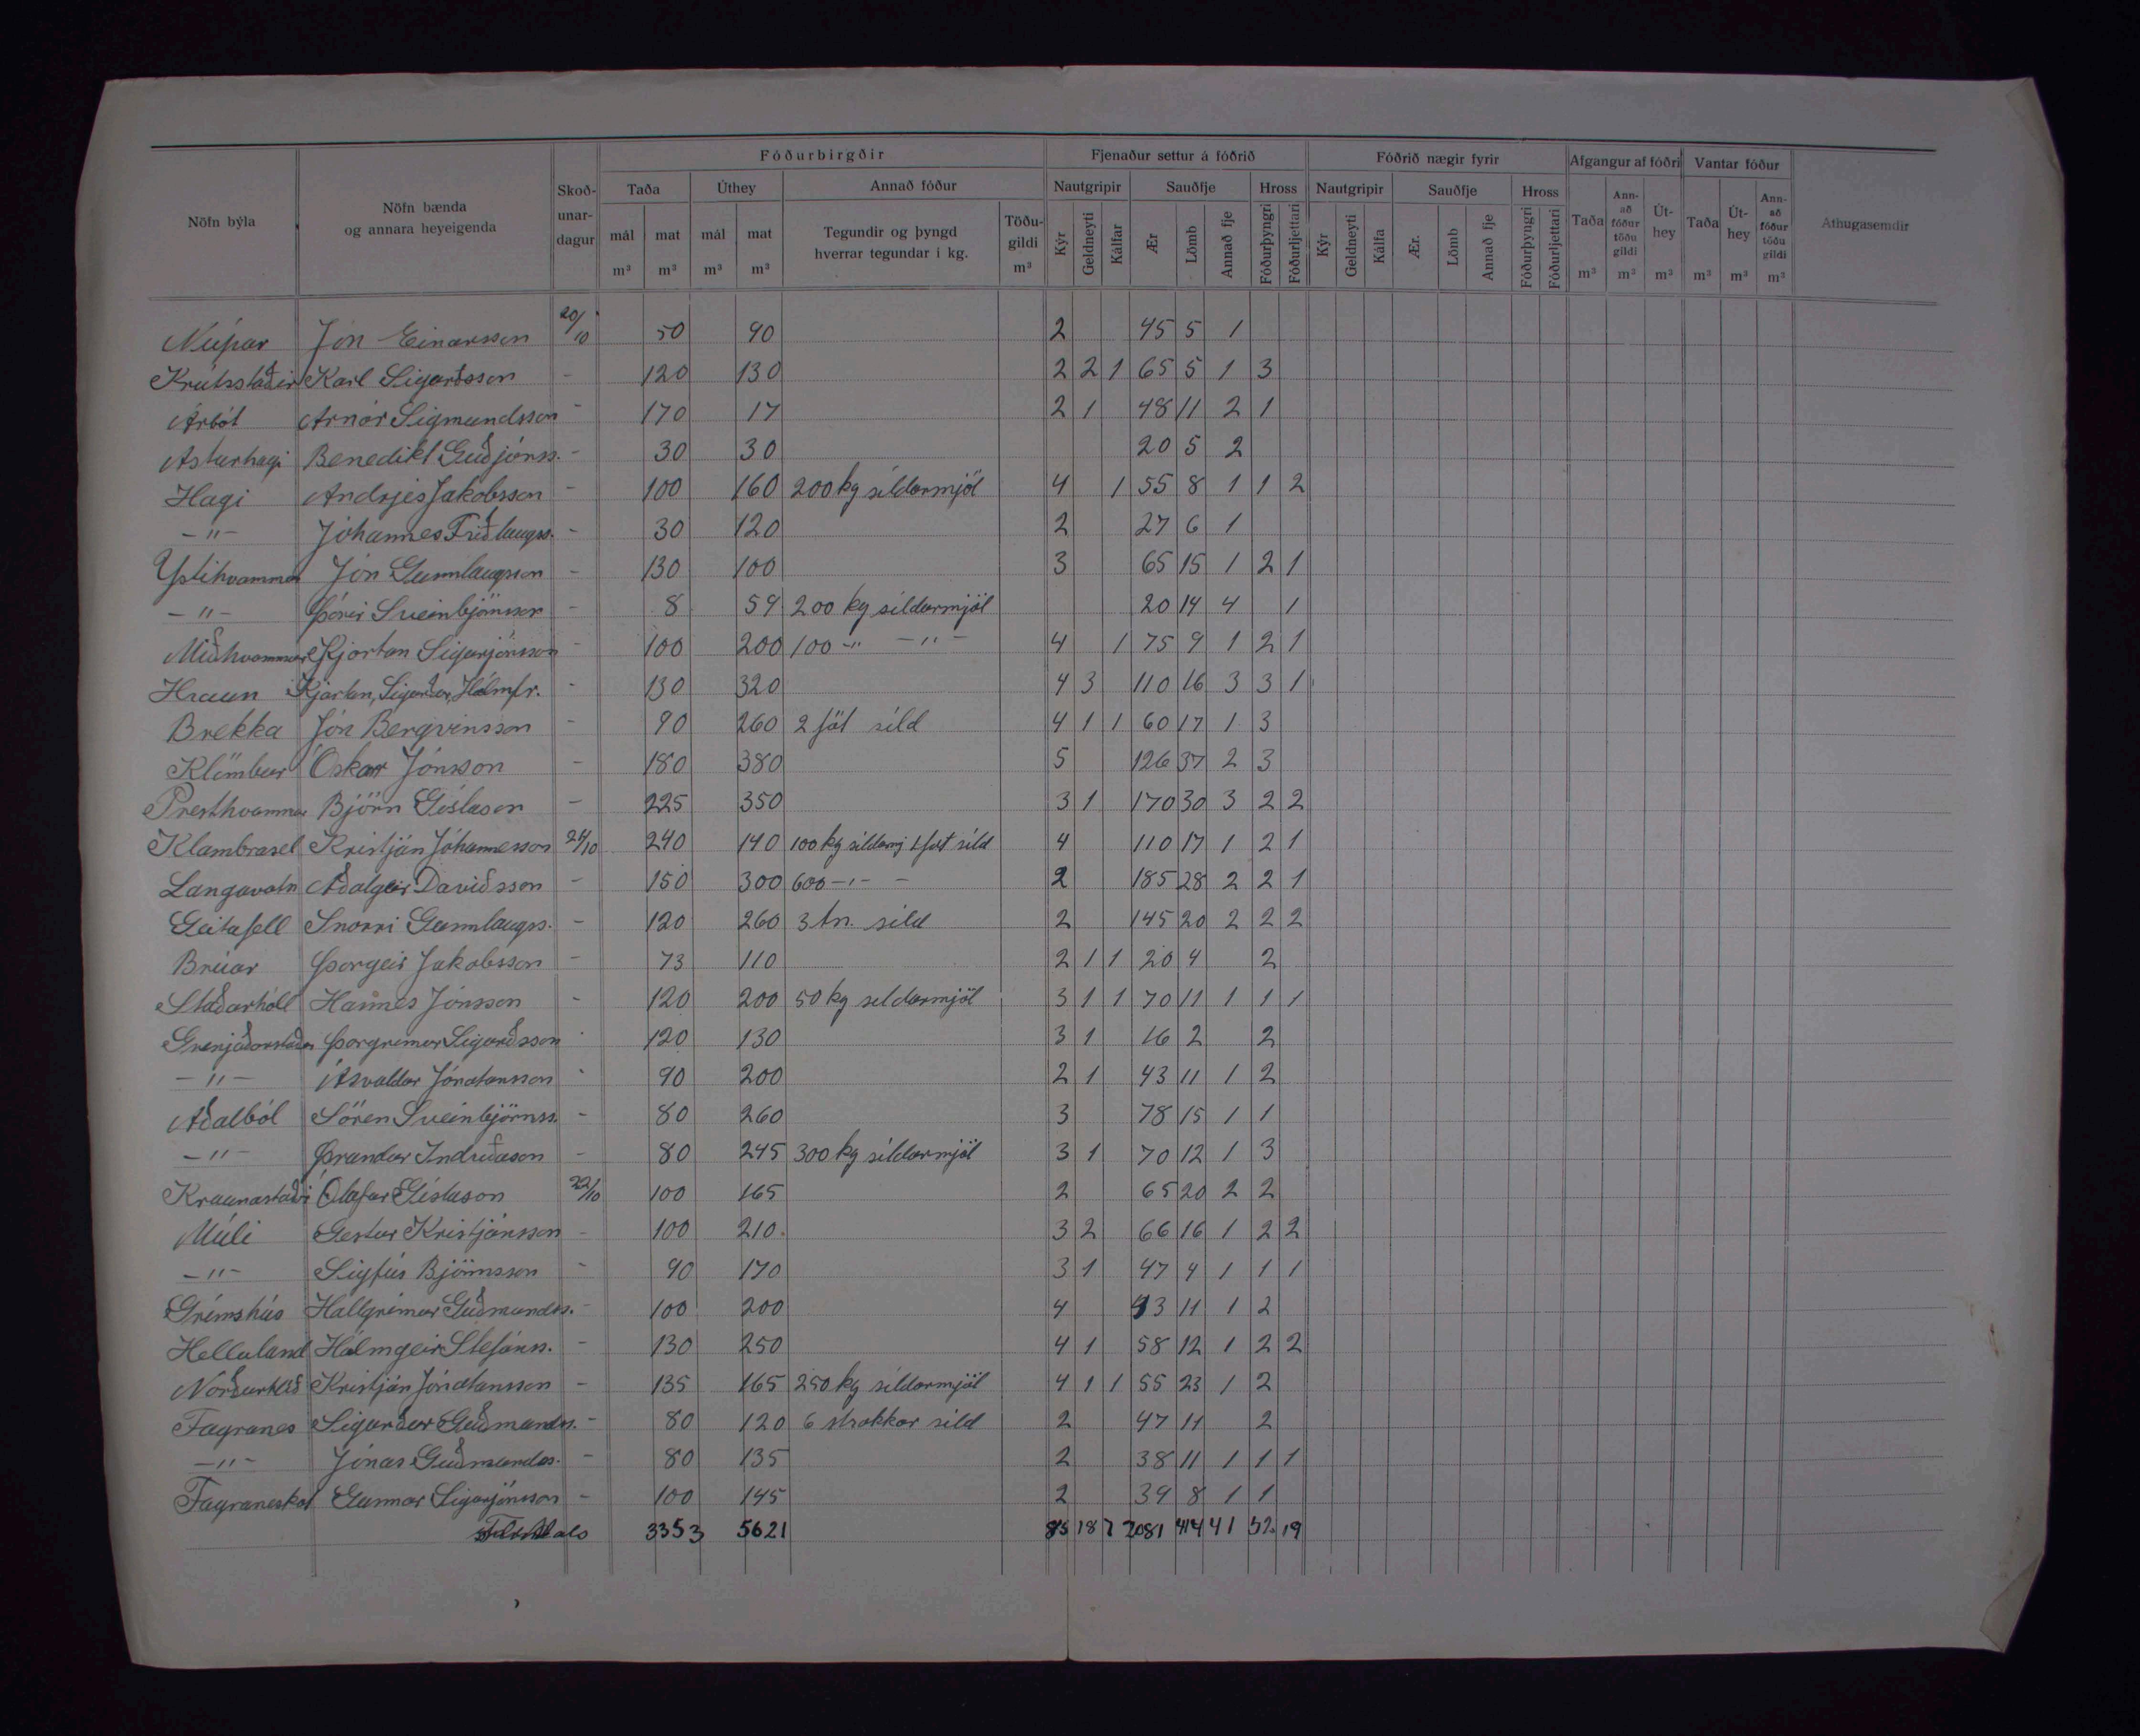 Fóðurbirgðir Fjenaður settur á fóðrið Fóðrið nægir fyrir Afgangur af fóðri Vantar fóður
Nöfn býla Nöfn bænda og annara heyeigenda Skoðunardagur Taða Úthey Annað fóður Nautgripir Sauðfje Hross Nautgripir Sauðfje Hross Taða Annað fóður töðu gildi Úthey Taða Úthey Annað fóður töðu gildi Athugasemdir
mál m³ mat m³ mál m³ mat m³ Tegundir og þyngd hverrar tegundar í kg. Töðugildi m³ Kýr Geldneyti Kálfar Ær Lömb Annað fje Fóðurþyngri Fóðurljettari Kýr Geldneyti Kálfa Ær. Lömb Annað fje Fóðurþyngri Fóðurljettari m³ m³ m³ m³ m³ m³
Núpar Jón Einarsson 20/10 50 90 2 45 5 1
Knútsstaðir Karl Sigurðsson - 120 130 2 2 1 65 5 1 3
Árbót Arnór Sigmundsson - 170 17 2 1 48 11 2 1
Asturhagi Benedikt Guðjónss. - 30 30 20 5 2
Hagi Andrjes Jakobsson - 100 160 200 kg síldarmjöl 4 1 55 8 1 1 2
-"- Jóhannes Friðlaugss. - 30 120 2 27 6 1
Ystihvammur Jón Gunnlaugsson - 130 100 3 65 15 1 2 1
-"- Þórir Sveinbjörnsson - 8 59 200 kg síldarmjöl 20 14 4 1
Miðhvammur Kjartan Sigurjónsson - 100 200 100 -"- -"- 4 1 75 9 1 2 1
Hraun Kjartan, Sigurður, Hólmfr. - 130 320 4 3 110 16 3 3 1
Brekka Jón Bergvinsson - 90 260 2 föt síld 4 1 1 60 17 1 3
Klömbur Óskar Jónsson - 180 380 5 126 37 2 3
Presthvammur Björn Gíslason - 225 350 3 1 170 30 3 2 2
Klambrasel Kristján Jóhannesson 21/10 240 140 100 kg síldarmj 1 fat síld 4 110 17 1 2 1
Langavatn Aðalgeir Davíðsson - 150 300 600 -"- - 2 185 28 2 2 1
Geitafell Snorri Gunnlaugss. - 120 260 3 tn. síld 2 145 20 2 2 2
Brúar Þorgeir Jakobsson - 73 110 2 1 1 20 4 2
Staðarhóll Hannes Jónsson - 120 200 50 kg síldarmjöl 3 1 1 70 11 1 1 1
Grenjaðarstaður Þorgrímur Sigurðsson - 120 130 3 1 16 2 2
-"- Ásvaldur Jónatansson - 90 200 2 1 43 11 1 2
Aðalból Sören Sveinbjörnss. - 80 260 3 78 15 1 1
-"- Þrandur Indriðason - 80 245 300 kg síldarmjöl 3 1 70 12 1 3
Kraunastaðir Ólafur Gíslason 22/10 100 165 2 65 20 2 2
Múli Gestur Kristjánsson - 100 210 3 2 66 16 1 2 2
-"- Sigfús Björnsson - 90 170 3 1 47 4 1 1 1
Grímshús Hallgrímur Guðmundss. - 100 200 4 43 11 1 2
Helluland Hólmgeir Stefánss. - 130 250 4 1 58 12 1 2 2
Norðurhlíð Kristján Jónatansson - 135 165 250 kg síldarmjöl 4 1 1 55 23 1 2
Fagranes Sigurður Guðmundss. - 80 120 6 strokkar síld 2 47 11 2
-"- Jónas Guðmundss. - 80 135 2 38 11 1 1 1
Fagraneskot Gunnar Sigurjónsson - 100 145 2 39 8 1 1
als 3353 5621 85 18 7 2081 414 41 52 19